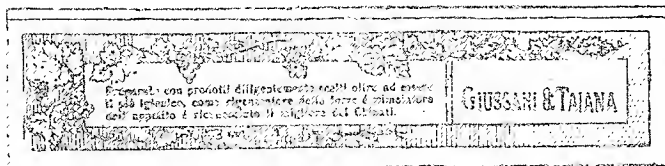 Preparato con prodotti diligentemente scelti oltre ad essere
il più igienico, come rigeneratore delle forze è stimolatore
dell'appetito è riconosciuto il migliore dei Chinati.
GIUSSANI & TAIANA